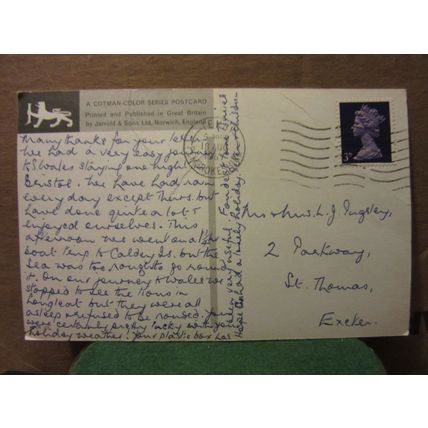 A COTMAN-COLOR SERIES POSTCARD
Printed and Published in Great Britain
by Jarrold & Sons Ltd, Norwich, England
Many thanks for your letter.
We had a very easy journey
to S. Wales staying one night
We have had rain
every day except Thurs. but
have done quite a lot &
enjoyed ourselves. This
afternoon we went on a 1½ hr
boat trip to Caldey Is. but the
sea was too rough to go round
it. On our journey to Wales we
stopped to see the lions in
Longleat but they were all
asleep & refused to be roused. You
were certainly lucky with your
holiday weather. Your plastic box has
been very useful. Fondest love
Hope Dad had a nice holiday.
Mr & Mrs L. J. Pugsley,
2 Parkway,
St. Thomas,
Exeter.
3D